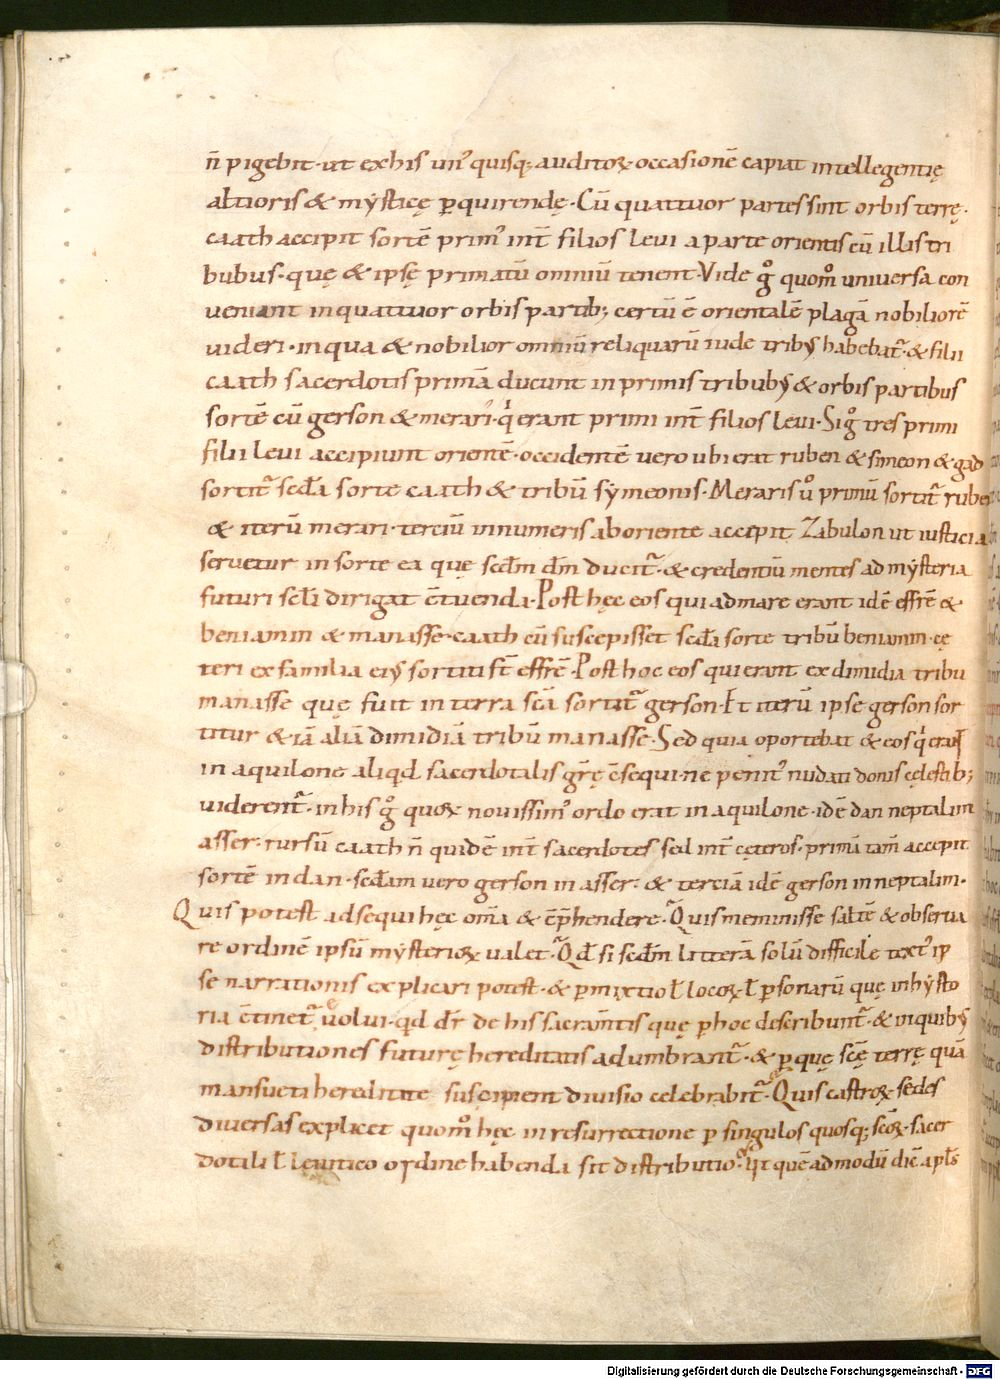 n̄ pigebit· ut ex his unꝰ quisq; auditoꝝ occasionē capiat intellegentię
altioris & mẏsticę ꝑquirendę· Cū quattuor partes sint orbis terrę·
caath accipit sortē primꝰ int̄ filios levi a parte orientis cū illis tri
bubus· quę & ipsę primatū omniū tenent· Vide gͦ quom̊ universa con
veniant in quattuor orbis partib; certū ē orientalē plagā nobiliorē
uideri· in qua & nobilior omniū reliquarū iude tribꝰ habebat᷑· & filii
caath sacerdotis primā ducunt in primis tribubꝰ & orbis partibus
sortē cū gerson & merari· qͥ erant primi int̄ filios levi· Si gͦ tres primi
filii levi accipiunt orientē· occidentē vero ubi erat ruben & simeon & gad
sortit᷑ scd̄a sorte caath & tribū sẏmeonis· Meraris uͦ primū sortit᷑ ruben
& iterū merari· terciū in numeris ab oriente accepit Zabulon ut iusticia
servetur in sorte ea quę scd̄m dm̄ ducit᷑· & credentiū mentes ad mẏsteria
futuri scl̄i dirigat c̄tuenda· Post hęc eos qui ad mare erant idē effrē &
beniamin & manasse· caath cū suscepisset scd̄a sorte tribū beniamin· cę
teri ex familia eiꝰ sortiti st̄ effrē· Post hoc eos qui erant ex dimidia tribu
manasse quę fuit in terra scā sortit᷑ gerson· Et iterū ipse gerson sor
titur & iā aliā dimidiā tribū manasse· Sed quia oportebat & eos qͥ erant
in aquilone aliqd̄ sacerdotalis gr̄ę c̄sequi· ne penitꝰ nudati donis cęlestib;
viderent᷑· in his gͦ quoꝝ novissimꝰ ordo erat in aquilone· idē dan neptalim
asser· rursū caath n̄ quidē int̄ sacerdotes sed int̄ cęteros· primā tam̄ accepit
sortē in dan· scd̄am vero gerson in asser· & terciā idē gerson in neptalim·
Quis potest adsequi hęc om̄a & c̄p̄hendere· Quis meminisse saltē & observa
re ordinē ipsū mẏsterioꝝ valet· Qd̄ si scd̄m litterā solū difficile textꝰ ip
se narrationis explicari potest· & ꝑmixtio l̄ locoꝝ· l̄ ꝑsonarū quę in hẏsto
ria c̄tinet᷑ uolui· qd̄ dr̄ de his sacram̄tis quę ꝑ hoc describunt᷑· & in quibꝰ
distributiones futurę hereditatis adumbrant᷑· & ꝑ quę scę terrę quā
mansueti hereditate suscipient divisio celebrabit᷑· Quis castroꝝ sedes
diversas explicet quom̊ hęc in resurrectione ꝑ singulos quosq; scōꝝ· sacer
dotali l̄ levitico ordine habenda sit distributio· ut quēadmodū dic̄ apl̄s
Digitalisierung gefördert durch die Deutsche Forschungsgemeinschaft - DFG